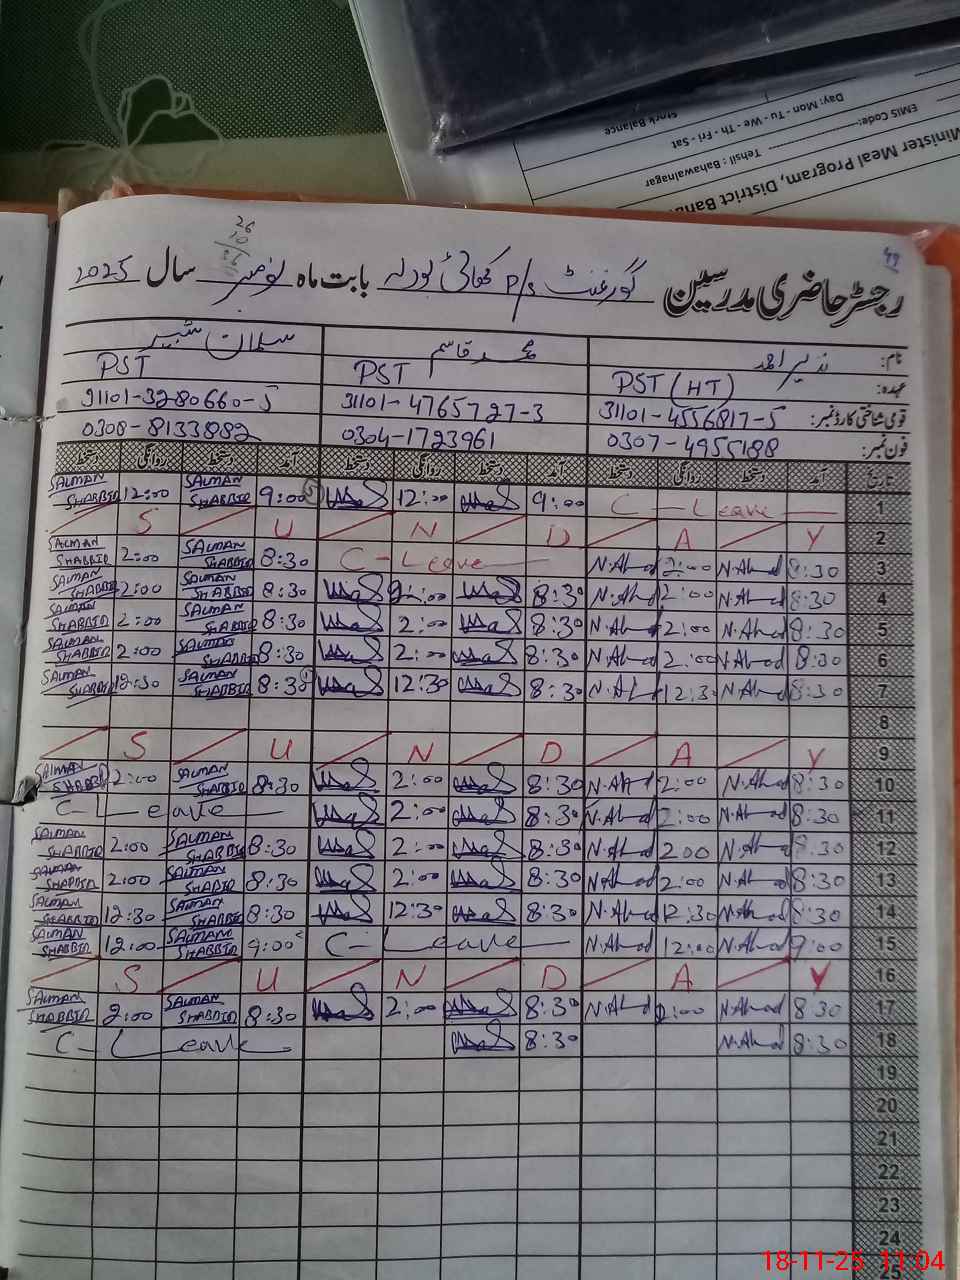 Minister Meal Program, District Baha
Tehsil : Bahawalnagar
EMIS Code:
Day: Mon - Tu - We - Th - Fri - Sat
Stork Balance
26
10
49
رجسٹر حاضری مدرسین گورنمنٹ P/S بابت ماہ نومبر سال 2025
نام: نذیر احمد محمد قاسم سلمان شبیر
عہدہ: PST (HT) PST PST
قومی شناختی کارڈ نمبر: 31101-4556817-5 31101-4765727-3 31101-3280660-5
فون نمبر: 0307-4955188 0304-1723961 0308-8133882
تاریخ آمد دستخط روانگی دستخط آمد دستخط روانگی دستخط آمد دستخط روانگی دستخط
1 C-Leave 9:00 12:00 9:00 SALMAN SHABBIR 12:00 SALMAN SHABBIR
2 S U N D A Y
3 8:30 N.Ahmad 2:00 N.Ahmad C-Leave 8:30 SALMAN SHABBIR 2:00 SALMAN SHABBIR
4 8:30 N.Ahmad 2:00 N.Ahmad 8:30 2:00 8:30 SALMAN SHABBIR 2:00 SALMAN SHABBIR
5 8:30 N.Ahmad 2:00 N.Ahmad 8:30 2:00 8:30 SALMAN SHABBIR 2:00 SALMAN SHABBIR
6 8:30 N.Ahmad 2:00 N.Ahmad 8:30 2:00 8:30 SALMAN SHABBIR 2:00 SALMAN SHABBIR
7 8:30 N.Ahmad 12:30 N.Ahmad 8:30 12:30 8:30 SALMAN SHABBIR 12:30 SALMAN SHABBIR
8
9 S U N D A Y
10 8:30 N.Ahmad 2:00 N.Ahmad 8:30 2:00 8:30 SALMAN SHABBIR 2:00 SALMAN SHABBIR
11 8:30 N.Ahmad 2:00 N.Ahmad 8:30 2:00 C-Leave
12 8:30 N.Ahmad 2:00 N.Ahmad 8:30 2:00 8:30 SALMAN SHABBIR 2:00 SALMAN SHABBIR
13 8:30 N.Ahmad 2:00 N.Ahmad 8:30 2:00 8:30 SALMAN SHABBIR 2:00 SALMAN SHABBIR
14 8:30 N.Ahmad 12:30 N.Ahmad 8:30 12:30 8:30 SALMAN SHABBIR 12:30 SALMAN SHABBIR
15 9:00 N.Ahmad 12:00 N.Ahmad C-Leave 9:00 SALMAN SHABBIR 12:00 SALMAN SHABBIR
16 S U N D A Y
17 8:30 N.Ahmad 2:00 N.Ahmad 8:30 2:00 8:30 SALMAN SHABBIR 2:00 SALMAN SHABBIR
18 8:30 N.Ahmad 8:30 C-Leave
19
20
21
22
23
24
25
18-11-25 11:04